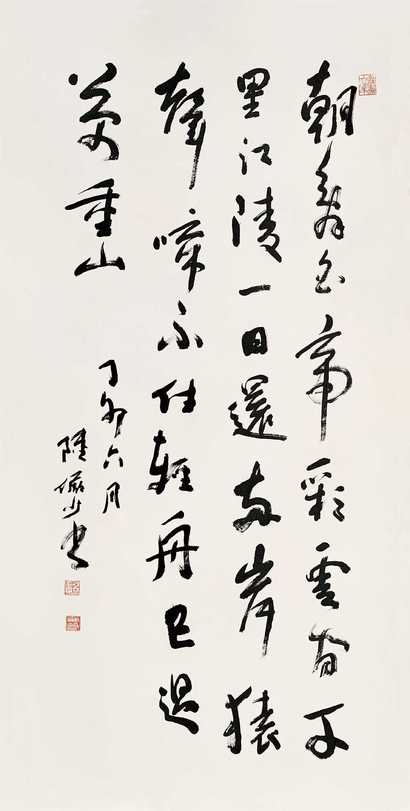 朝辭白帝彩雲間千
里江陵一日還兩岸猿
聲啼不住輕舟已過
萬重山
丁卯六月
陸儼少書